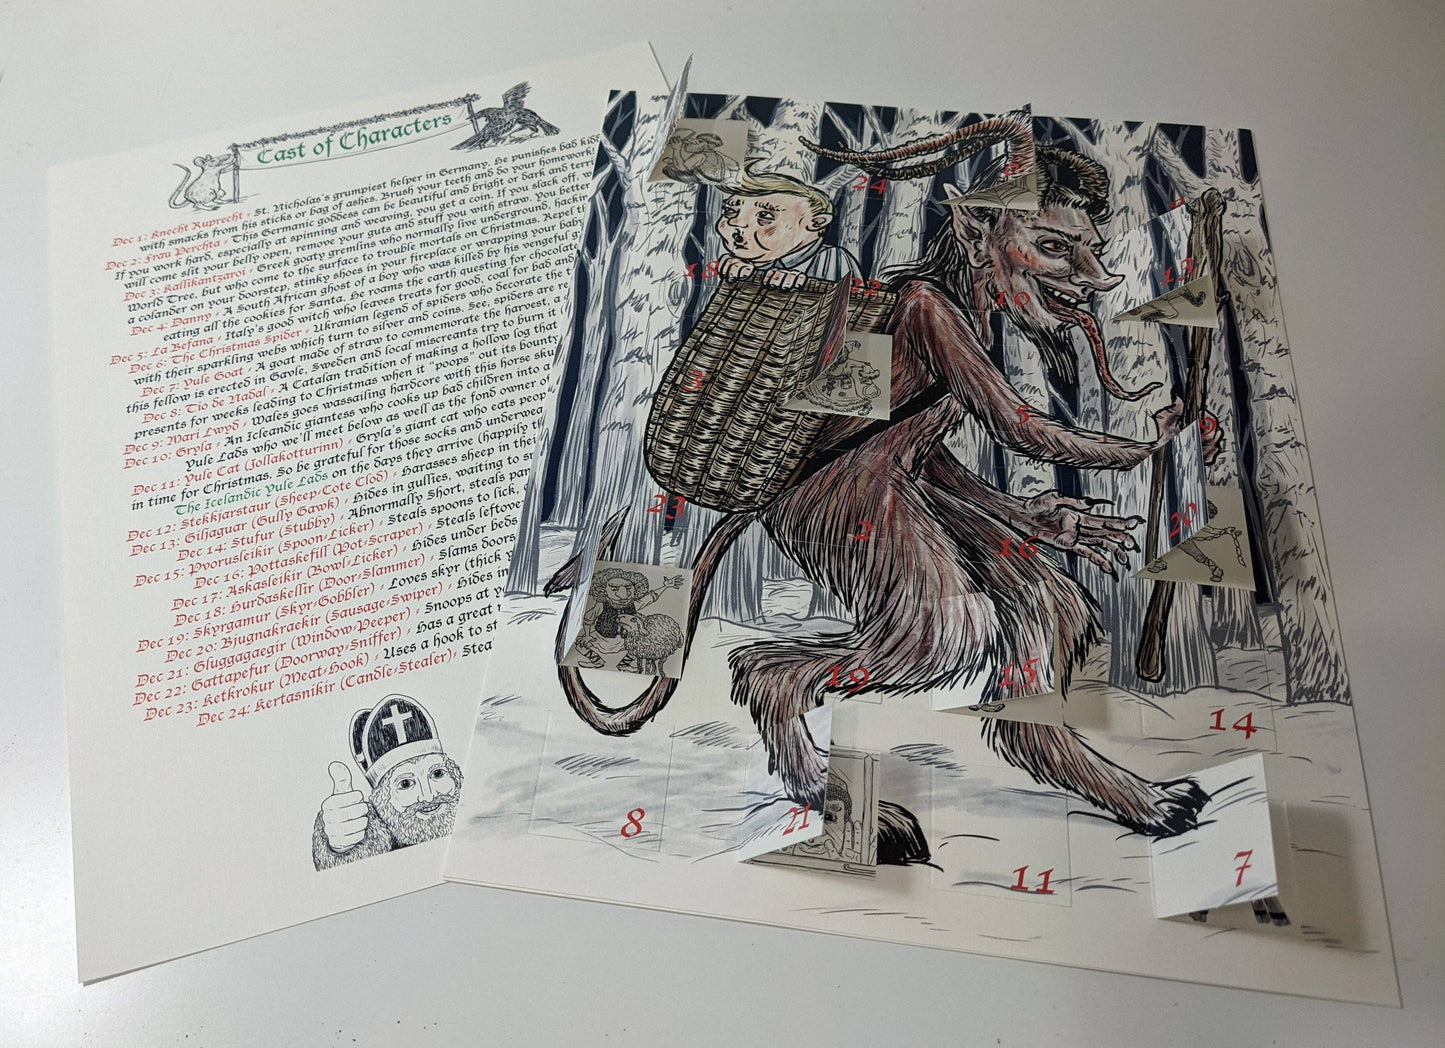 Cast of Characters
Dec 1: Knecht Ruprecht - St. Nicholas's grumpiest helper in Germany. He punishes bad kids
with smacks from his sticks or bag of ashes. Brush your teeth and do your homework!
Dec 2: Frau Perchta - This Germanic goddess can be beautiful and bright or dark and
If you work hard, especially at spinning and weaving, you get a coin. If you slack off,
will come slit your belly open, remove your guts and stuff you with straw. You better
Dec 3: Kallikantzaroi - Greek goaty gremlins who normally live underground,
World Tree, but who come to the surface to trouble mortals on Christmas. Repel
a colander on your doorstep, stinky shoes in your fireplace or wrapping your
Dec 4: Danny - A South African ghost of a boy who was killed by his vengeful
eating all the cookies for Santa. He roams the earth questing for
Dec 5: La Befana - Italy's good witch who leaves treats for good, coal for bad and
Dec 6: The Christmas Spider - Ukranian legend of spiders who decorate the
with their sparkling webs which turn to silver and coins. See, spiders are
Dec 7: Yule Goat - A goat made of straw to commemorate the harvest,
this fellow is erected in Gavle, Sweden and local miscreants try to burn it
Dec 8: Tio de Nadal - A Catalan tradition of making a hollow log that
presents for weeks leading to Christmas when it "poops" out its bounty
Dec 9: Mari Lwyd - Wales goes wassailing hardcore with this horse
Dec 10: Gryla - An Icleandic giantess who cooks up bad children into
Yule Lads who we'll meet below as well as the fond owner of
Dec 11: Yule Cat (Jollakotturinn) - Gryla's giant cat who eats
in time for Christmas. So be grateful for those socks and
The Icelandic Yule Lads on the days they arrive (happily
Dec 12: Stekkjarstaur (Sheep-Cote Clod) - Harasses sheep in
Dec 13: Giljaguar (Gully Gawk) - Hides in gullies, waiting to
Dec 14: Stufur (Stubby) - Abnormally Short, steals
Dec 15: Pvorusleikir (Spoon-Licker) - Steals spoons to lick.
Dec 16: Pottaskefill (Pot-Scraper) - Steals
Dec 17: Askasleikir (Bowl-Licker) - Hides under beds
Dec 18: Hurdaskellir (Door-Slammer) - Slams doors
Dec 19: Skyrgamur (Skyr-Gobbler) - Loves skyr (thick
Dec 20: Bjugnakraekir (Sausage-Swiper) - Hides in
Dec 21: Gluggagaegir (Window-Peeper) - Snoops at
Dec 22: Gattapefur (Doorway-Sniffer) - Has a great
Dec 23: Ketkrokur (Meat-Hook) - Uses a hook to
Dec 24: Kertasnikir (Candle-Stealer)-
24
18
22
13
10
3
5
9
23
2
16
20
19
15
14
8
21
11
7